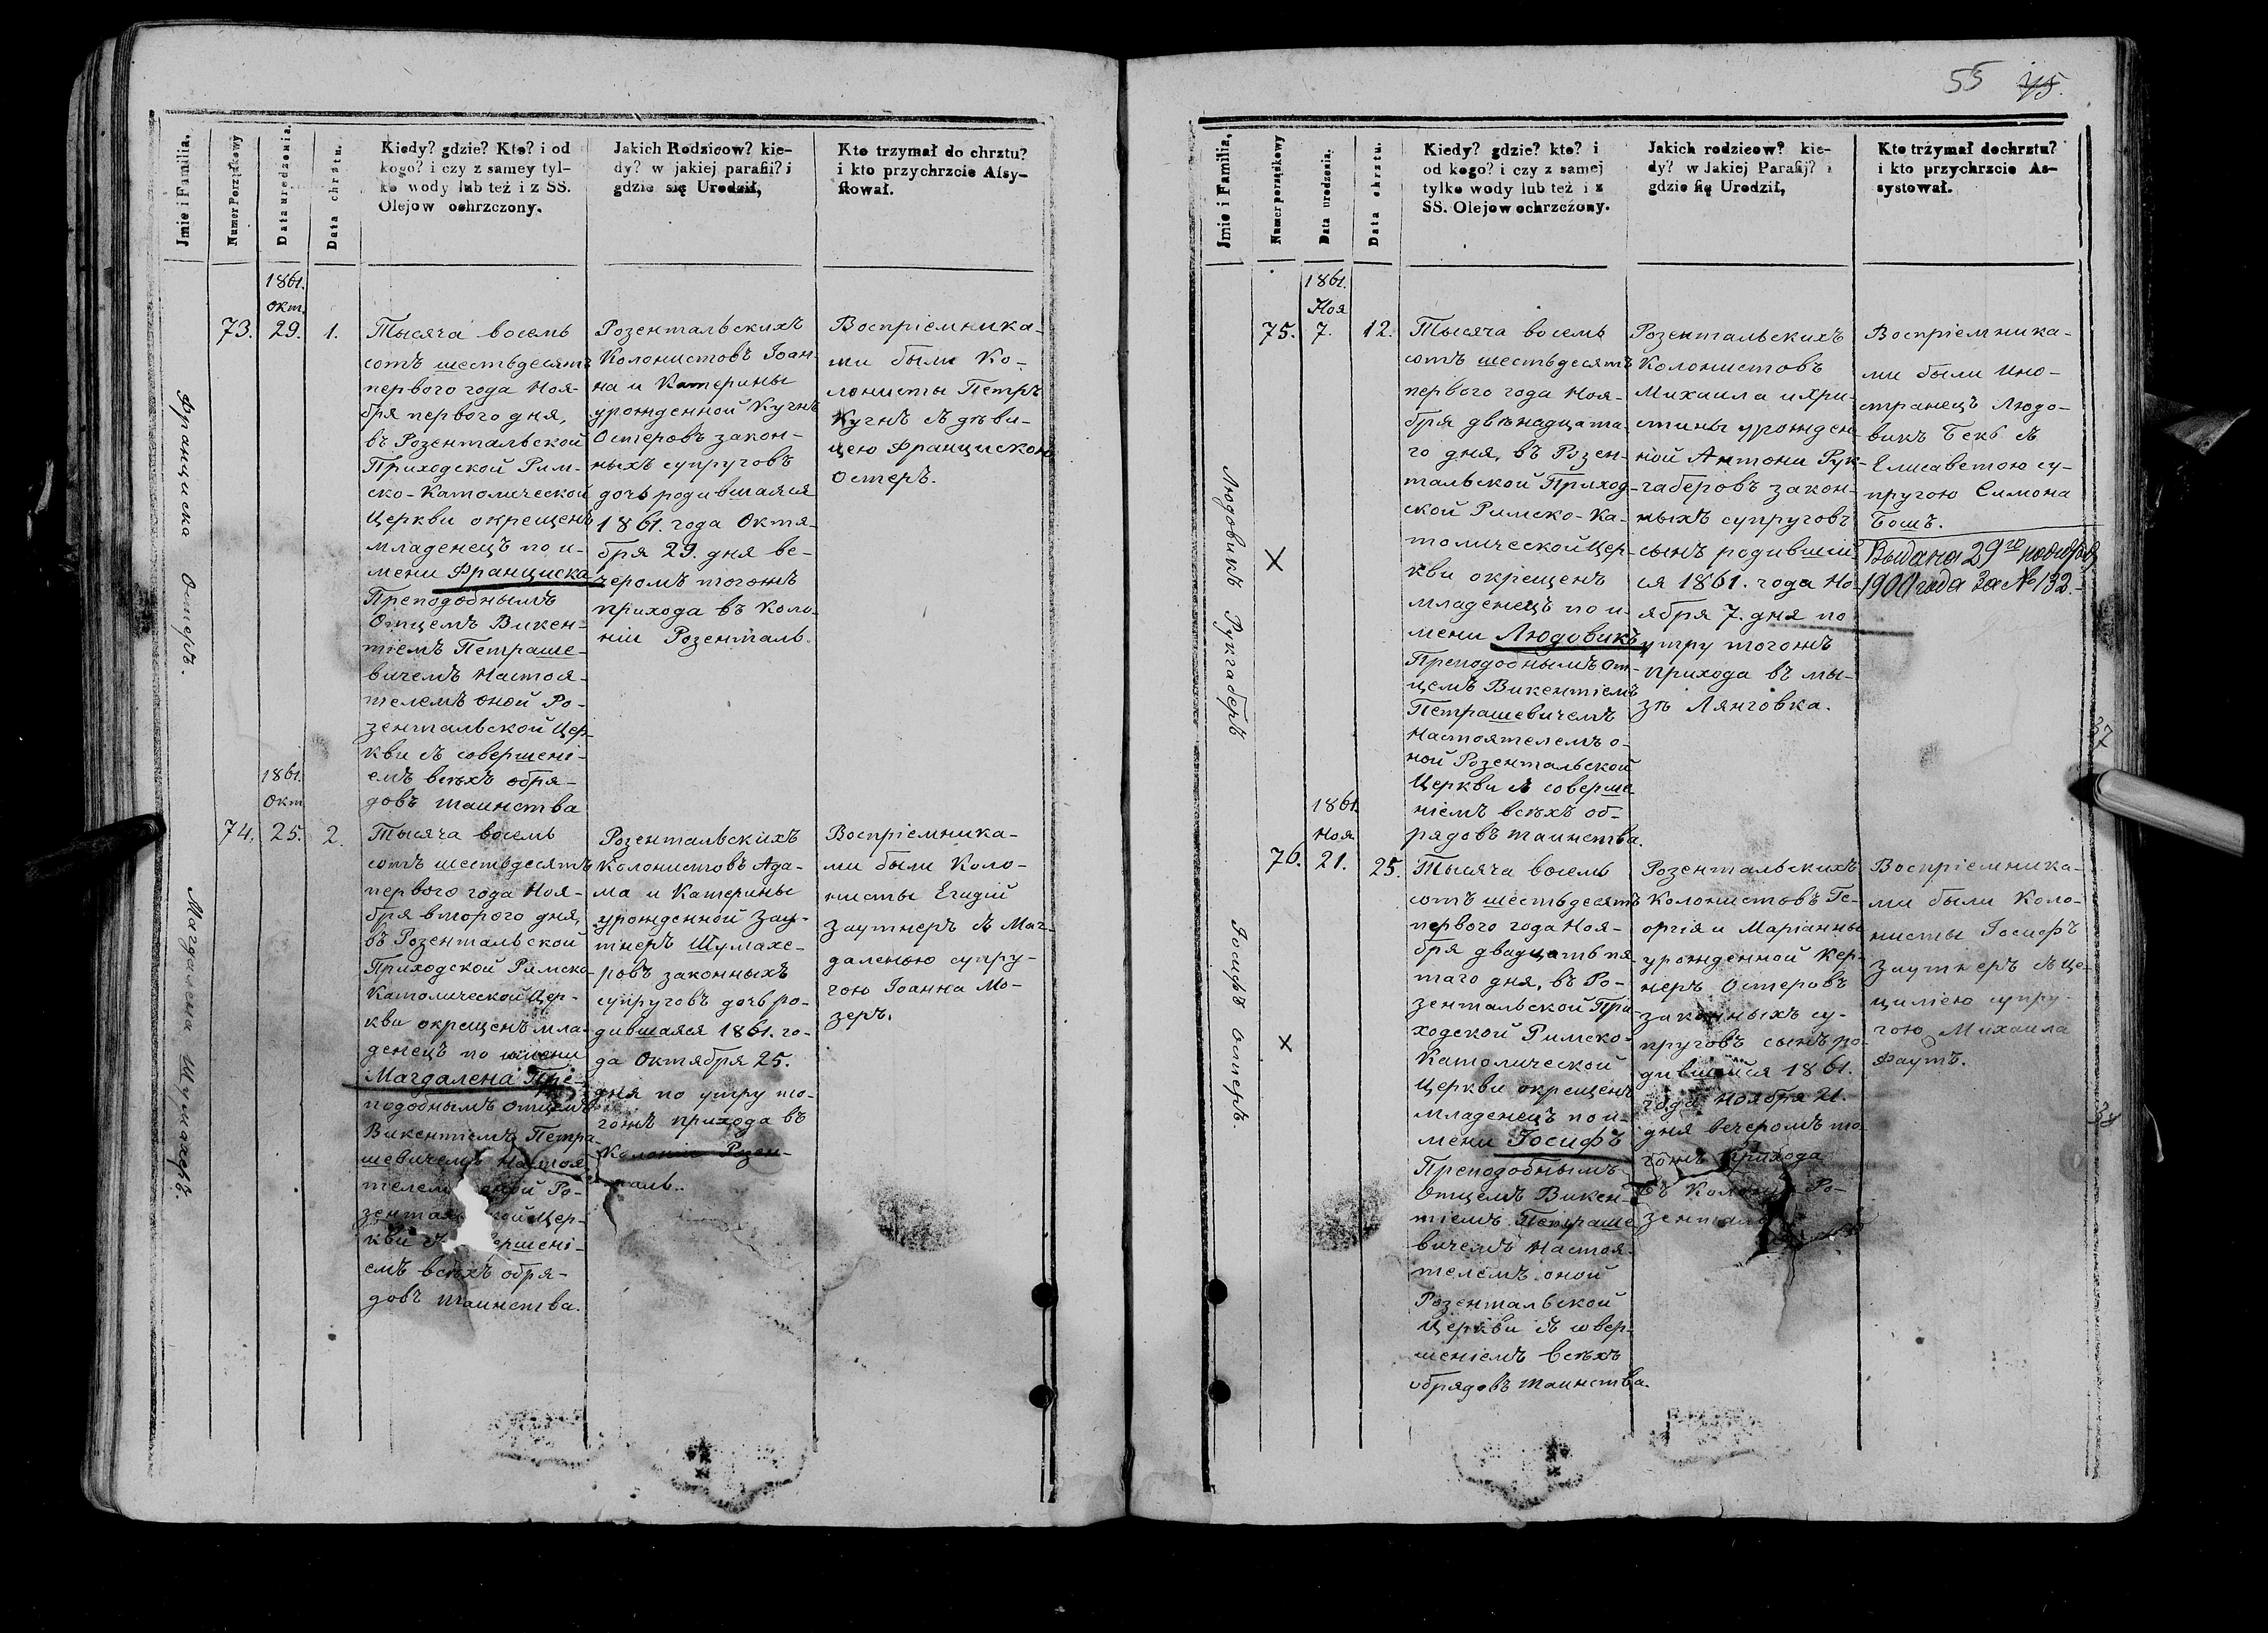 55 75.
Jmie i Familia.
Numer Porządkowy
Data urodzenia.
Data chrztu.
Kiedy? gdzie? Kto? i od
kogo? i czy z samey tyl-
ko wody lub też i z SS.
Olejow ochrzczony.
Jakich Rodzicow? kie-
dy? w jakiej parafii? i
gdzie się Urodził,
Kto trzymał do chrztu?
i kto przychrzcie Assy-
stował.
Франциска Остеръ.
1861.
Окт.
73. 29. 1.
Тысяча восемь
сотъ шестьдесятъ
перваго года Ноя-
бря перваго дня,
въ Розентальской
Приходской Рим-
ско-Католической
Церкви окрещенъ
младенецъ по и-
мени Франциска
Преподобнымъ
Отцемъ Викен-
тіемъ Петраше-
вичемъ Настоя-
телемъ оной Ро-
зентальской Цер-
кви съ совершені-
емъ всѣхъ обря-
довъ таинства
Розентальскихъ
Колонистовъ Іоан-
на и Катерины
урожденной Кугнъ
Остеровъ закон-
ныхъ супруговъ
дочь родившаяся
1861. года Октя-
бря 29. дня ве-
черомъ тогожъ
прихода въ Коло-
ніи Розенталь.
Воспріемника-
ми были Ко-
лонисты Петръ
Кугнъ съ дѣви-
цею Францискою
Остеръ.
Магдалена Шумахеръ.
1861.
Окт
74. 25. 2.
Тысяча восемь
сотъ шестьдесятъ
перваго года Ноя-
бря втораго дня,
въ Розентальской
Приходской Римско-
Католической Цер-
кви окрещенъ мла-
денецъ по имени
Магдалена Пре-
подобнымъ Отцемъ
Викентіемъ Петра-
шевичемъ Настоя-
телем оной Ро-
зентал кой Цер-
кви съ ершені-
емъ всѣхъ обря-
довъ таинства.
Розентальскихъ
Колонистовъ Ада-
ма и Катерины
урожденной Зау-
тнеръ Шумахе-
ровъ законныхъ
супруговъ дочь ро-
дившаяся 1861. го-
да Октября 25.
дня по утру то-
гожъ прихода въ
Колоніи Розен-
таль.
Воспріемника-
ми были Коло-
нисты Егидій
Заутнеръ съ Маг-
даленою супру-
гою Іоанна Мо-
зеръ.
Jmie i Familia.
Numer porządkowy
Data urodzenia.
Data chrztu.
Kiedy? gdzie? kto? i
od kogo? i czy z samej
tylko wody lub też i z
SS. Olejow ochrzczony.
Jakich rodzicow? kie-
dy? w Jakiej Parafij? i
gdzie się Urodził,
Kto trzymał dochrztu?
i kto przychrzcie As-
systował.
Людовикъ Рукгаберъ
1861.
Ноя
75. 7. 12.
Х
Тысяча восемь
сотъ шестьдесятъ
перваго года Ноя-
бря двѣнадцата-
го дня, въ Розен-
тальской Приход-
ской Римско-Ка-
толической Цер-
кви окрещенъ
младенецъ по и-
мени Людовикъ
Преподобнымъ От-
цемъ Викентіемъ
Петрашевичемъ
Настоятелемъ о-
ной Розентальской
Церкви съ соверше-
ніемъ всѣхъ об-
рядовъ таинства.
Розентальскихъ
Колонистовъ
Михаила и Хри-
стины урожден-
ной Антони Рук-
габеровъ закон-
ныхъ супруговъ
сынъ родившій-
ся 1861. года Но-
ября 7. дня по
утру тогожъ
прихода въ мы-
зѣ Лянговка.
Воспріемника-
ми были Ино-
странецъ Людо-
викъ Бекъ съ
Елисаветою су-
пругою Симона
Бошъ.
Выдана 29го ноября
1901 года за № 132.
37
Іосифъ Остеръ.
1861.
Ноя
76. 21. 25.
Х
Тысяча восемь
сотъ шестьдесятъ
перваго года Ноя-
бря двадцать пя-
таго дня, въ Ро-
зентальской При-
ходской Римско-
Католической
Церкви окрещенъ
младенецъ по и-
мени Іосифъ
Преподобнымъ
Отцемъ Викен-
тіемъ Петраше-
вичемъ Настоя-
телемъ оной
Розентальской
Церкви съ совер-
шеніемъ всѣхъ
обрядовъ таинства.
Розентальскихъ
Колонистовъ Ге-
оргія и Маріанны
урожденной Кер-
неръ Остеровъ
законныхъ су-
пруговъ сынъ ро-
дившійся 1861.
года Ноября 21.
дня вечеромъ то-
гожъ прихода
въ Колоніи Ро-
зенталь
Воспріемника-
ми были Коло-
нисты Іосифъ
Заутнеръ съ Це-
циліею супру-
гою Михаила
Фаутъ.